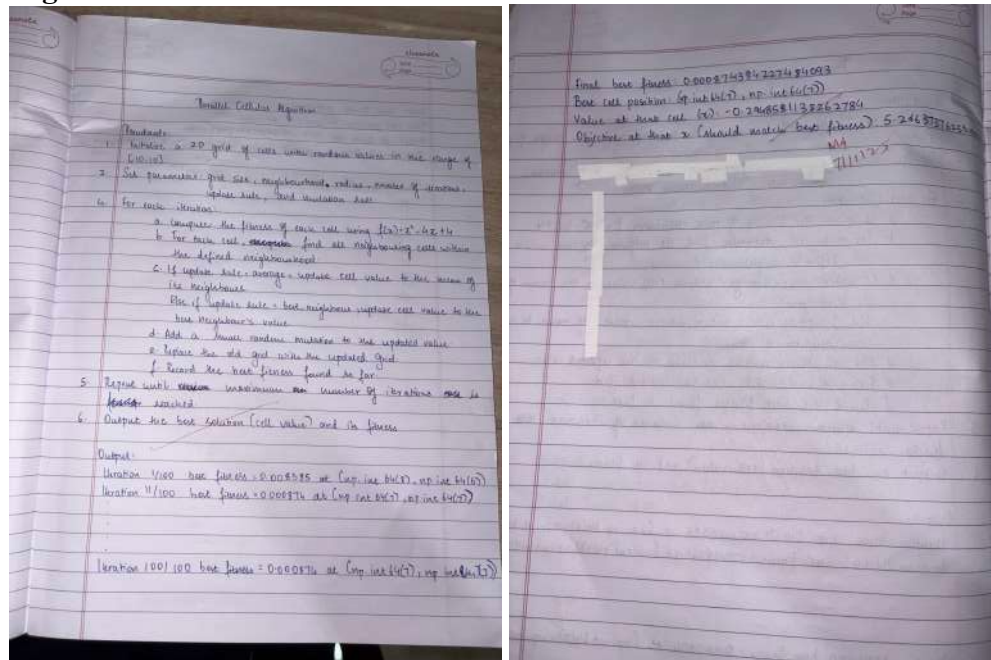 classmate
Date
Page
Parallel Cellular Algorithm
Pseudocode:
1. Initialize a 2D grid of cells with random values in the range of
[-10,10]
2. Set parameters: grid size, neighbourhood radius, number of iterations,
update rule, and mutation rate
4. For each iteration:
a. Compute the fitness of each cell using f(x)=x²-4x+4
b. For each cell, find all neighbouring cells within
the defined neighbourhood
c. If update rule = average, update cell value to the mean of
its neighbours
Else if update rule = best neighbour, update cell value to the
best neighbour's value
d. Add a small random mutation to the updated value
e. Replace the old grid with the updated grid
f. Record the best fitness found so far
5. Repeat until maximum number of iterations is
reached
6. Output the best solution (cell value) and its fitness
Output:
Iteration 1/100 best fitness = 0.008595 at (np.int64(8), np.int64(6))
Iteration 11/100 best fitness = 0.000874 at (np.int64(7), np.int64(7))
Iteration 100/100 best fitness = 0.000874 at (np.int64(7), np.int64(7))
Final best fitness: 0.000874394227484093
Best cell position: (np.int64(7), np.int64(7))
Value at that cell (x): -0.2948581138262784
Objective at that x (should match best fitness): 5.26637376